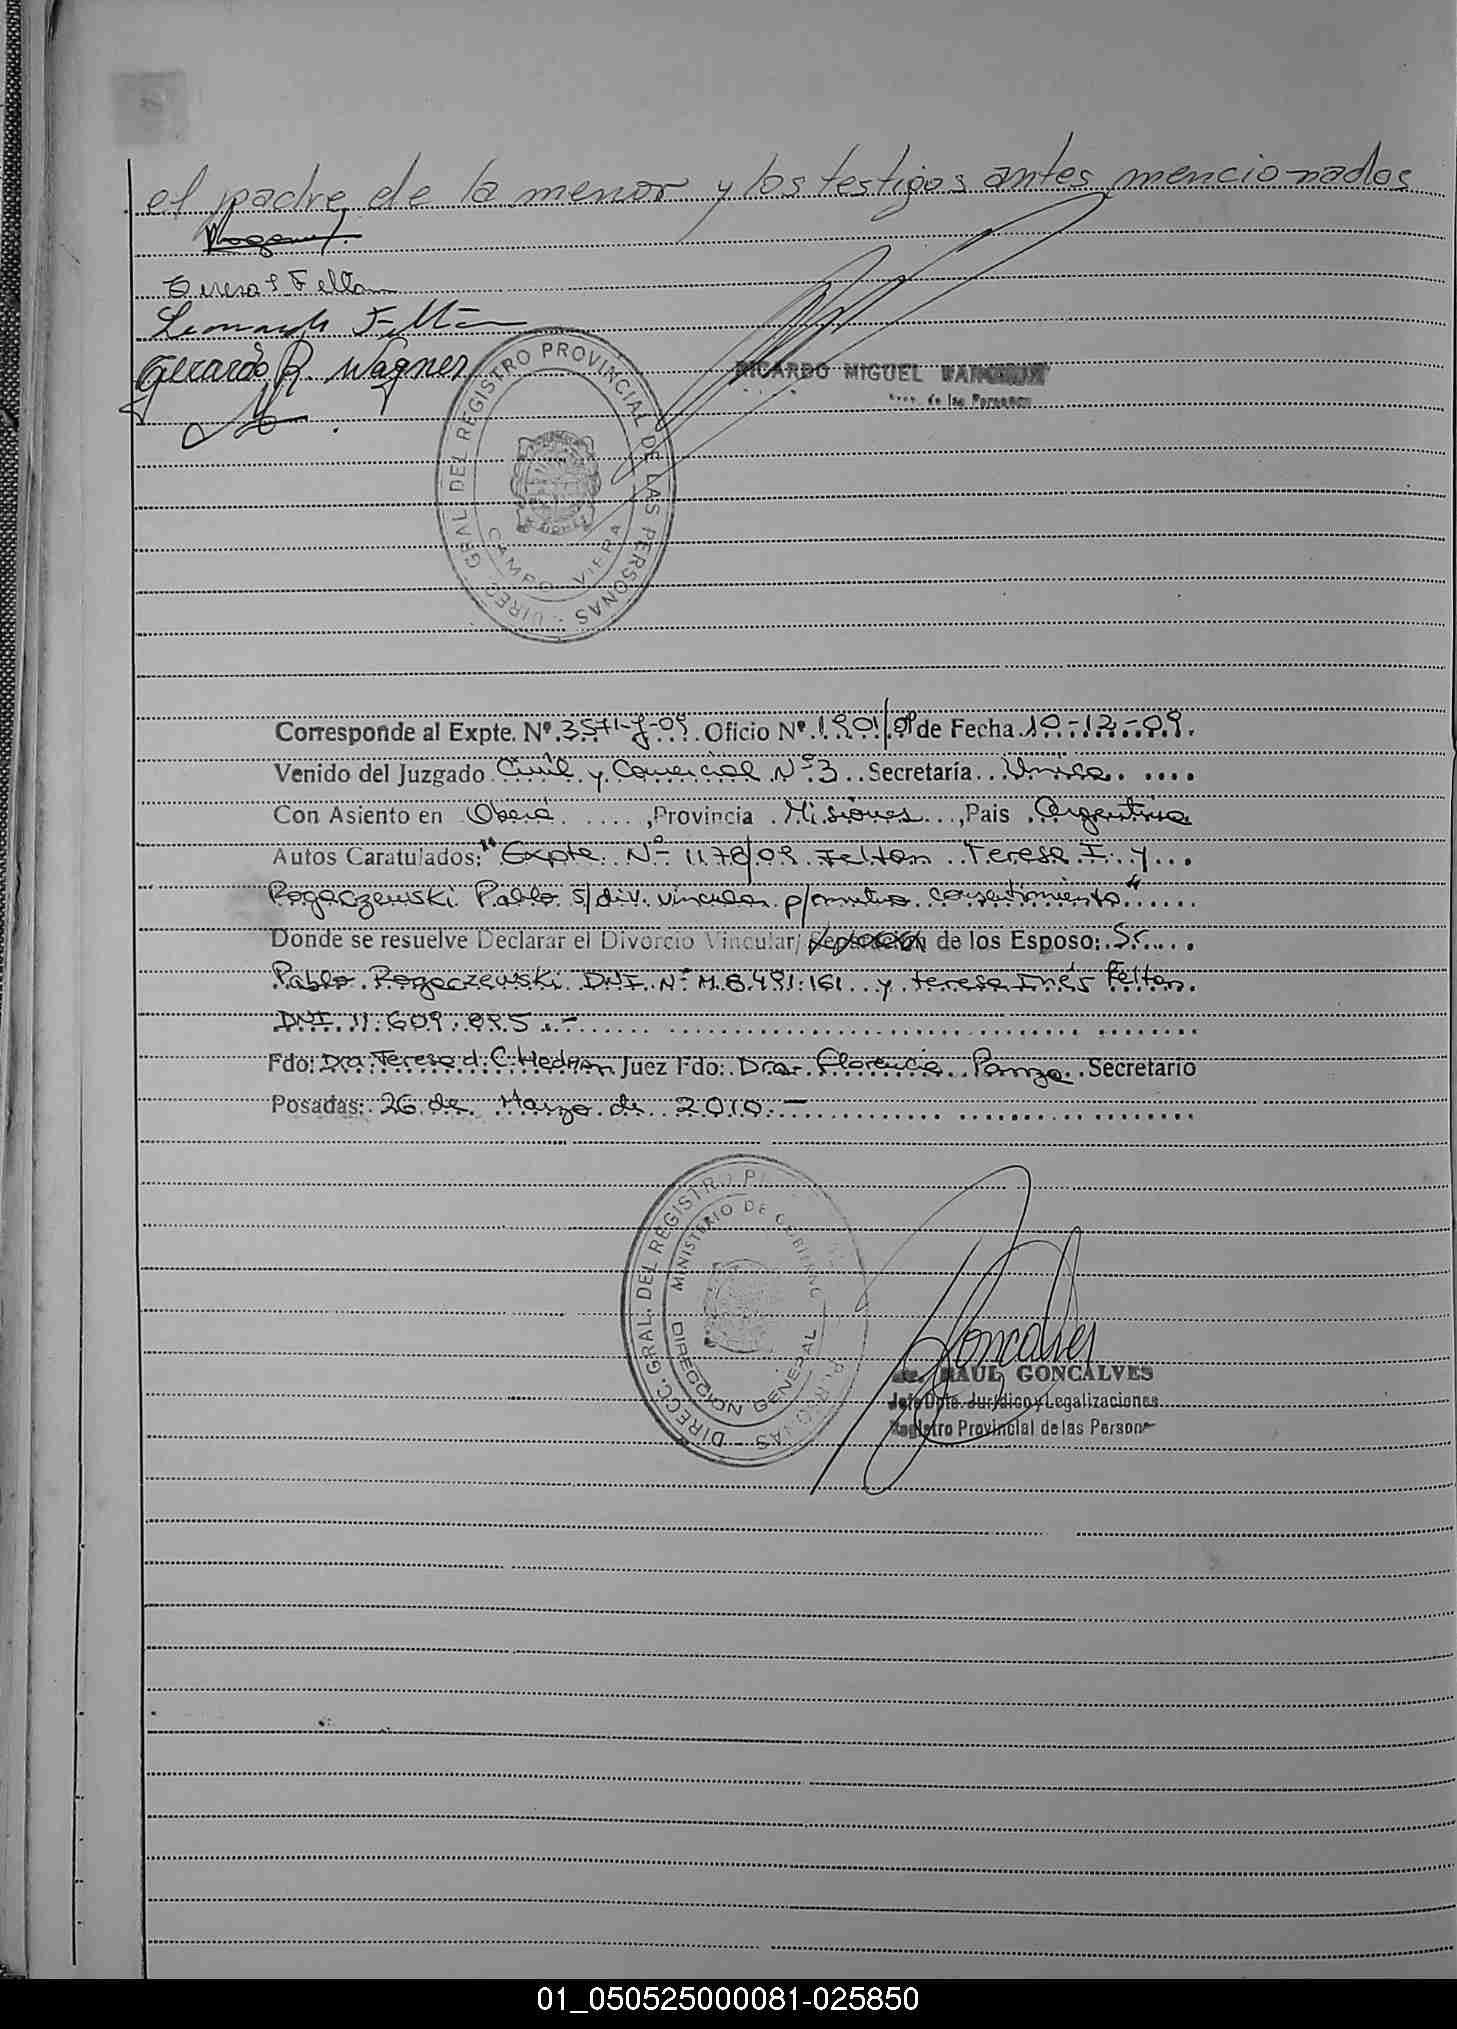 el padre de la menor y los testigos antes mencionados
Teresa I Felten
Leonardo Felten
Gerardo R. Wagner
RICARDO MIGUEL
de las Personas
DIREC. GRAL DEL REGISTRO PROVINCIAL DE LAS PERSONAS
CAMPO VIERA
Corresponde al Expte. Nº 3571-J-09 Oficio Nº 1901/09 de Fecha 10-12-09.
Venido del Juzgado Civil y Comercial Nº 3 Secretaría Unica
Con Asiento en Oberá, Provincia Misiones, Pais Argentina
Autos Caratulados: "Expte. Nº 1178/09 Felten Teresa I. y
Rogaczewski Pablo s/div. vincular p/mutuo consentimiento"
Donde se resuelve Declarar el Divorcio Vincular/ Separación de los Esposo: Sr.
Pablo Rogaczewski DNI Nº M.8.491.161 y Teresa Inés Felten
DNI 11.609.895.-
Fdo: Dra. Teresa d. C. Hedman Juez Fdo: Dra. Florencia Panza Secretario
Posadas: 26 de Marzo de 2010.-
DIRECC. GRAL. DEL REGISTRO PERSONAS
MINISTERIO DE GOBIERNO
DIRECCION GENERAL
Goncalves
Dr. RAUL GONCALVES
Jefe Dpto. Jurídico y Legalizaciones
Registro Provincial de las Persona
01_050525000081-025850